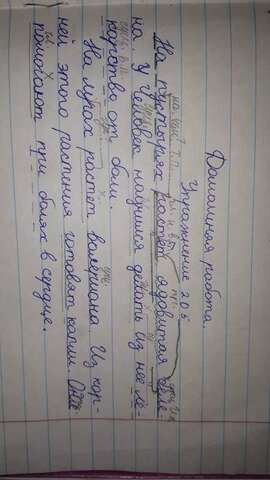 Домашняя работа
Упражнение 205
На пустырях растет ядовитая беле-
на. Человек научился делать из неё ле-
карство от боли.
На лугах растет валериана. Из кор-
ней этого растения готовят капли. Они
помогают при болях в сердце.